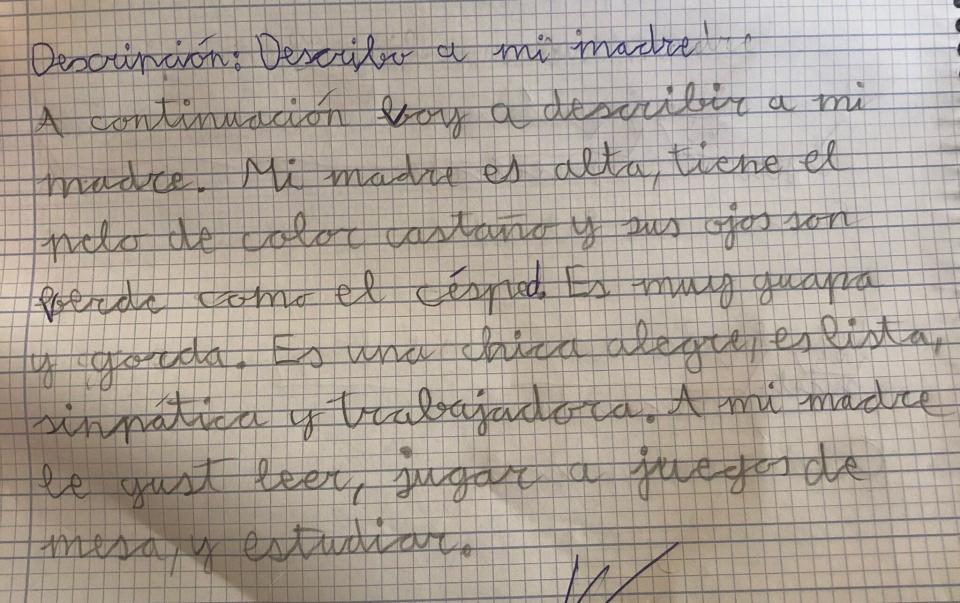 Descripción: Describo a mi madre...
A continuación voy a describir a mi
madre. Mi madre es alta, tiene el
pelo de color castaño y sus ojos son
verde como el césped. Es muy guapa
y gorda. Es una chica alegre, es lista,
sinpática y trabajadora. A mi madre
le gust leer, jugar a juegos de
mesa, y estudiar.